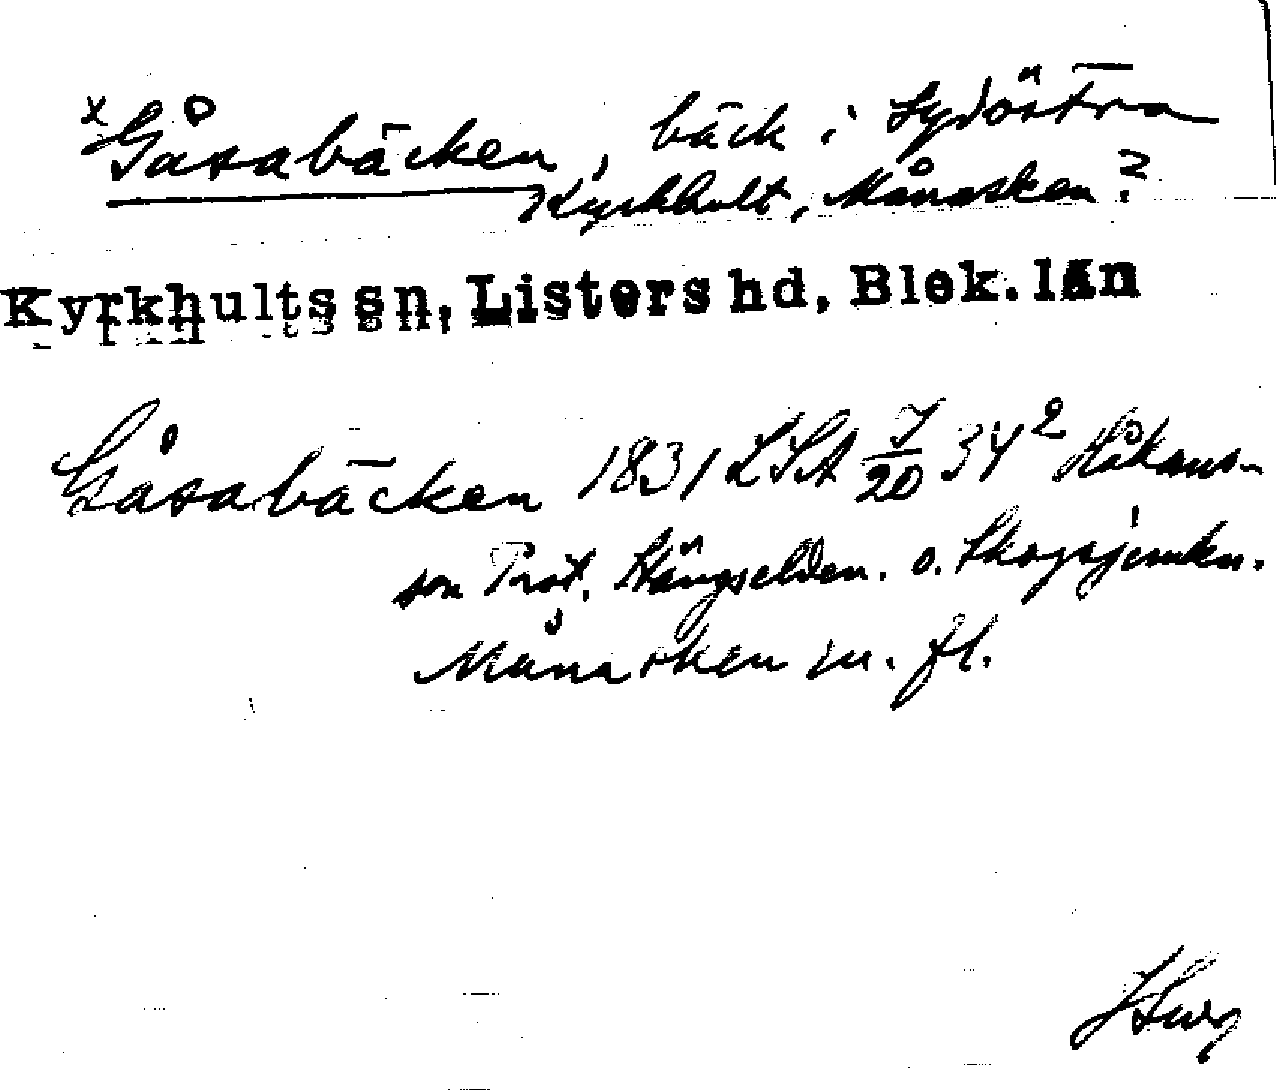 x Gåsabäcken, bäck i sydöstra
Kyrkhult, Månasken?
Kyrkhults sn, Listers hd, Blek. län
Gåsabäcken 1831 LSA I/20 34² Håkans-
son Prot. Stängselden. o. Skogsjemkn.
Månasken m. fl.